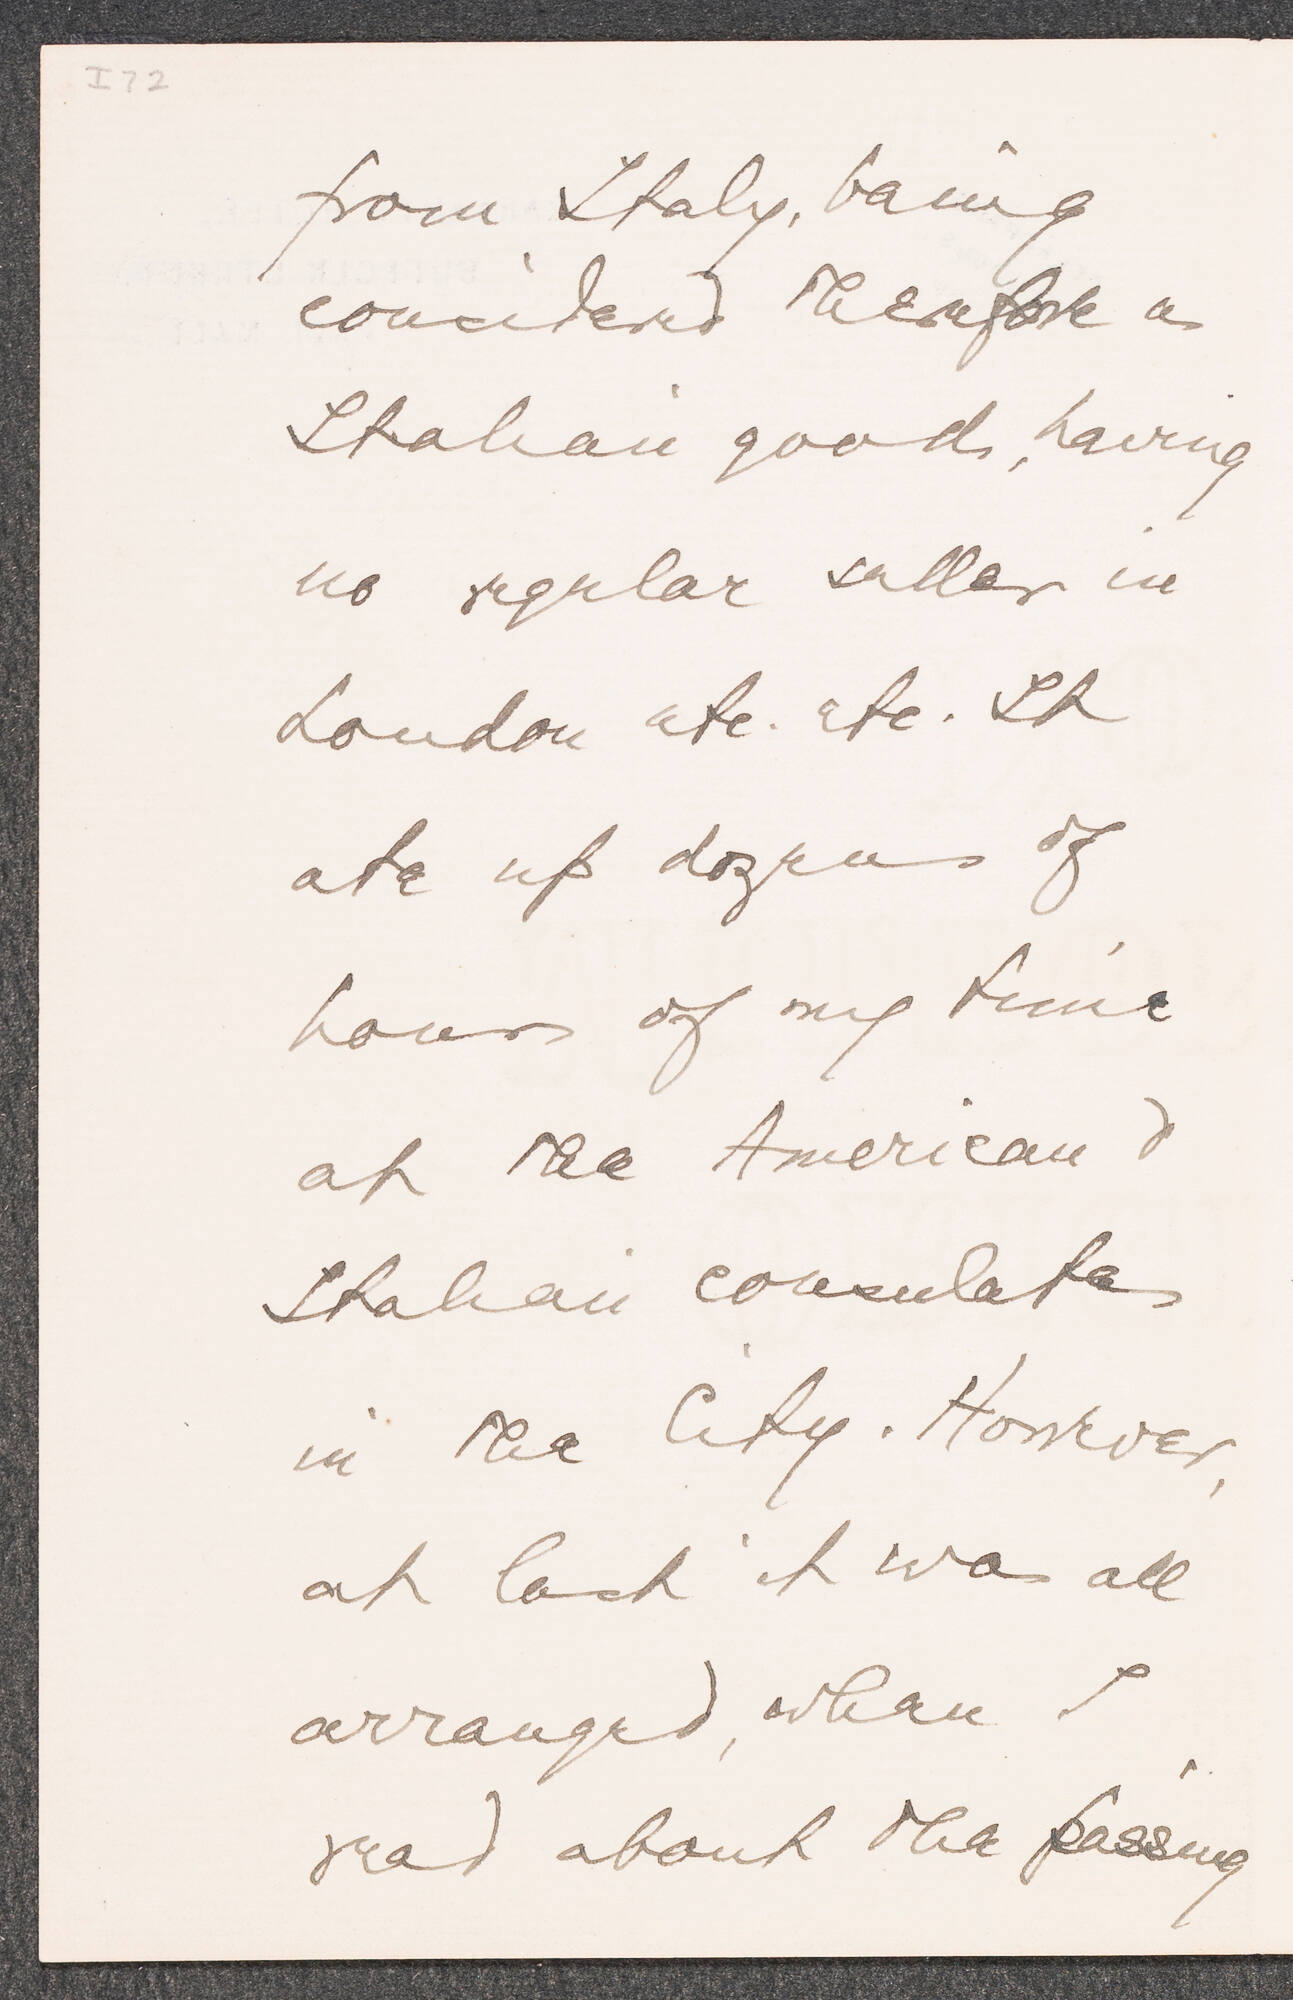 I72
from Italy, being
considered therefore as
Italian goods, having
no regular seller in
London etc. etc. It
ate up dozens of
hours of my time
at the American &
Italian consulates
in the City. However,
at last it was all
arranged, when I
read about the passing